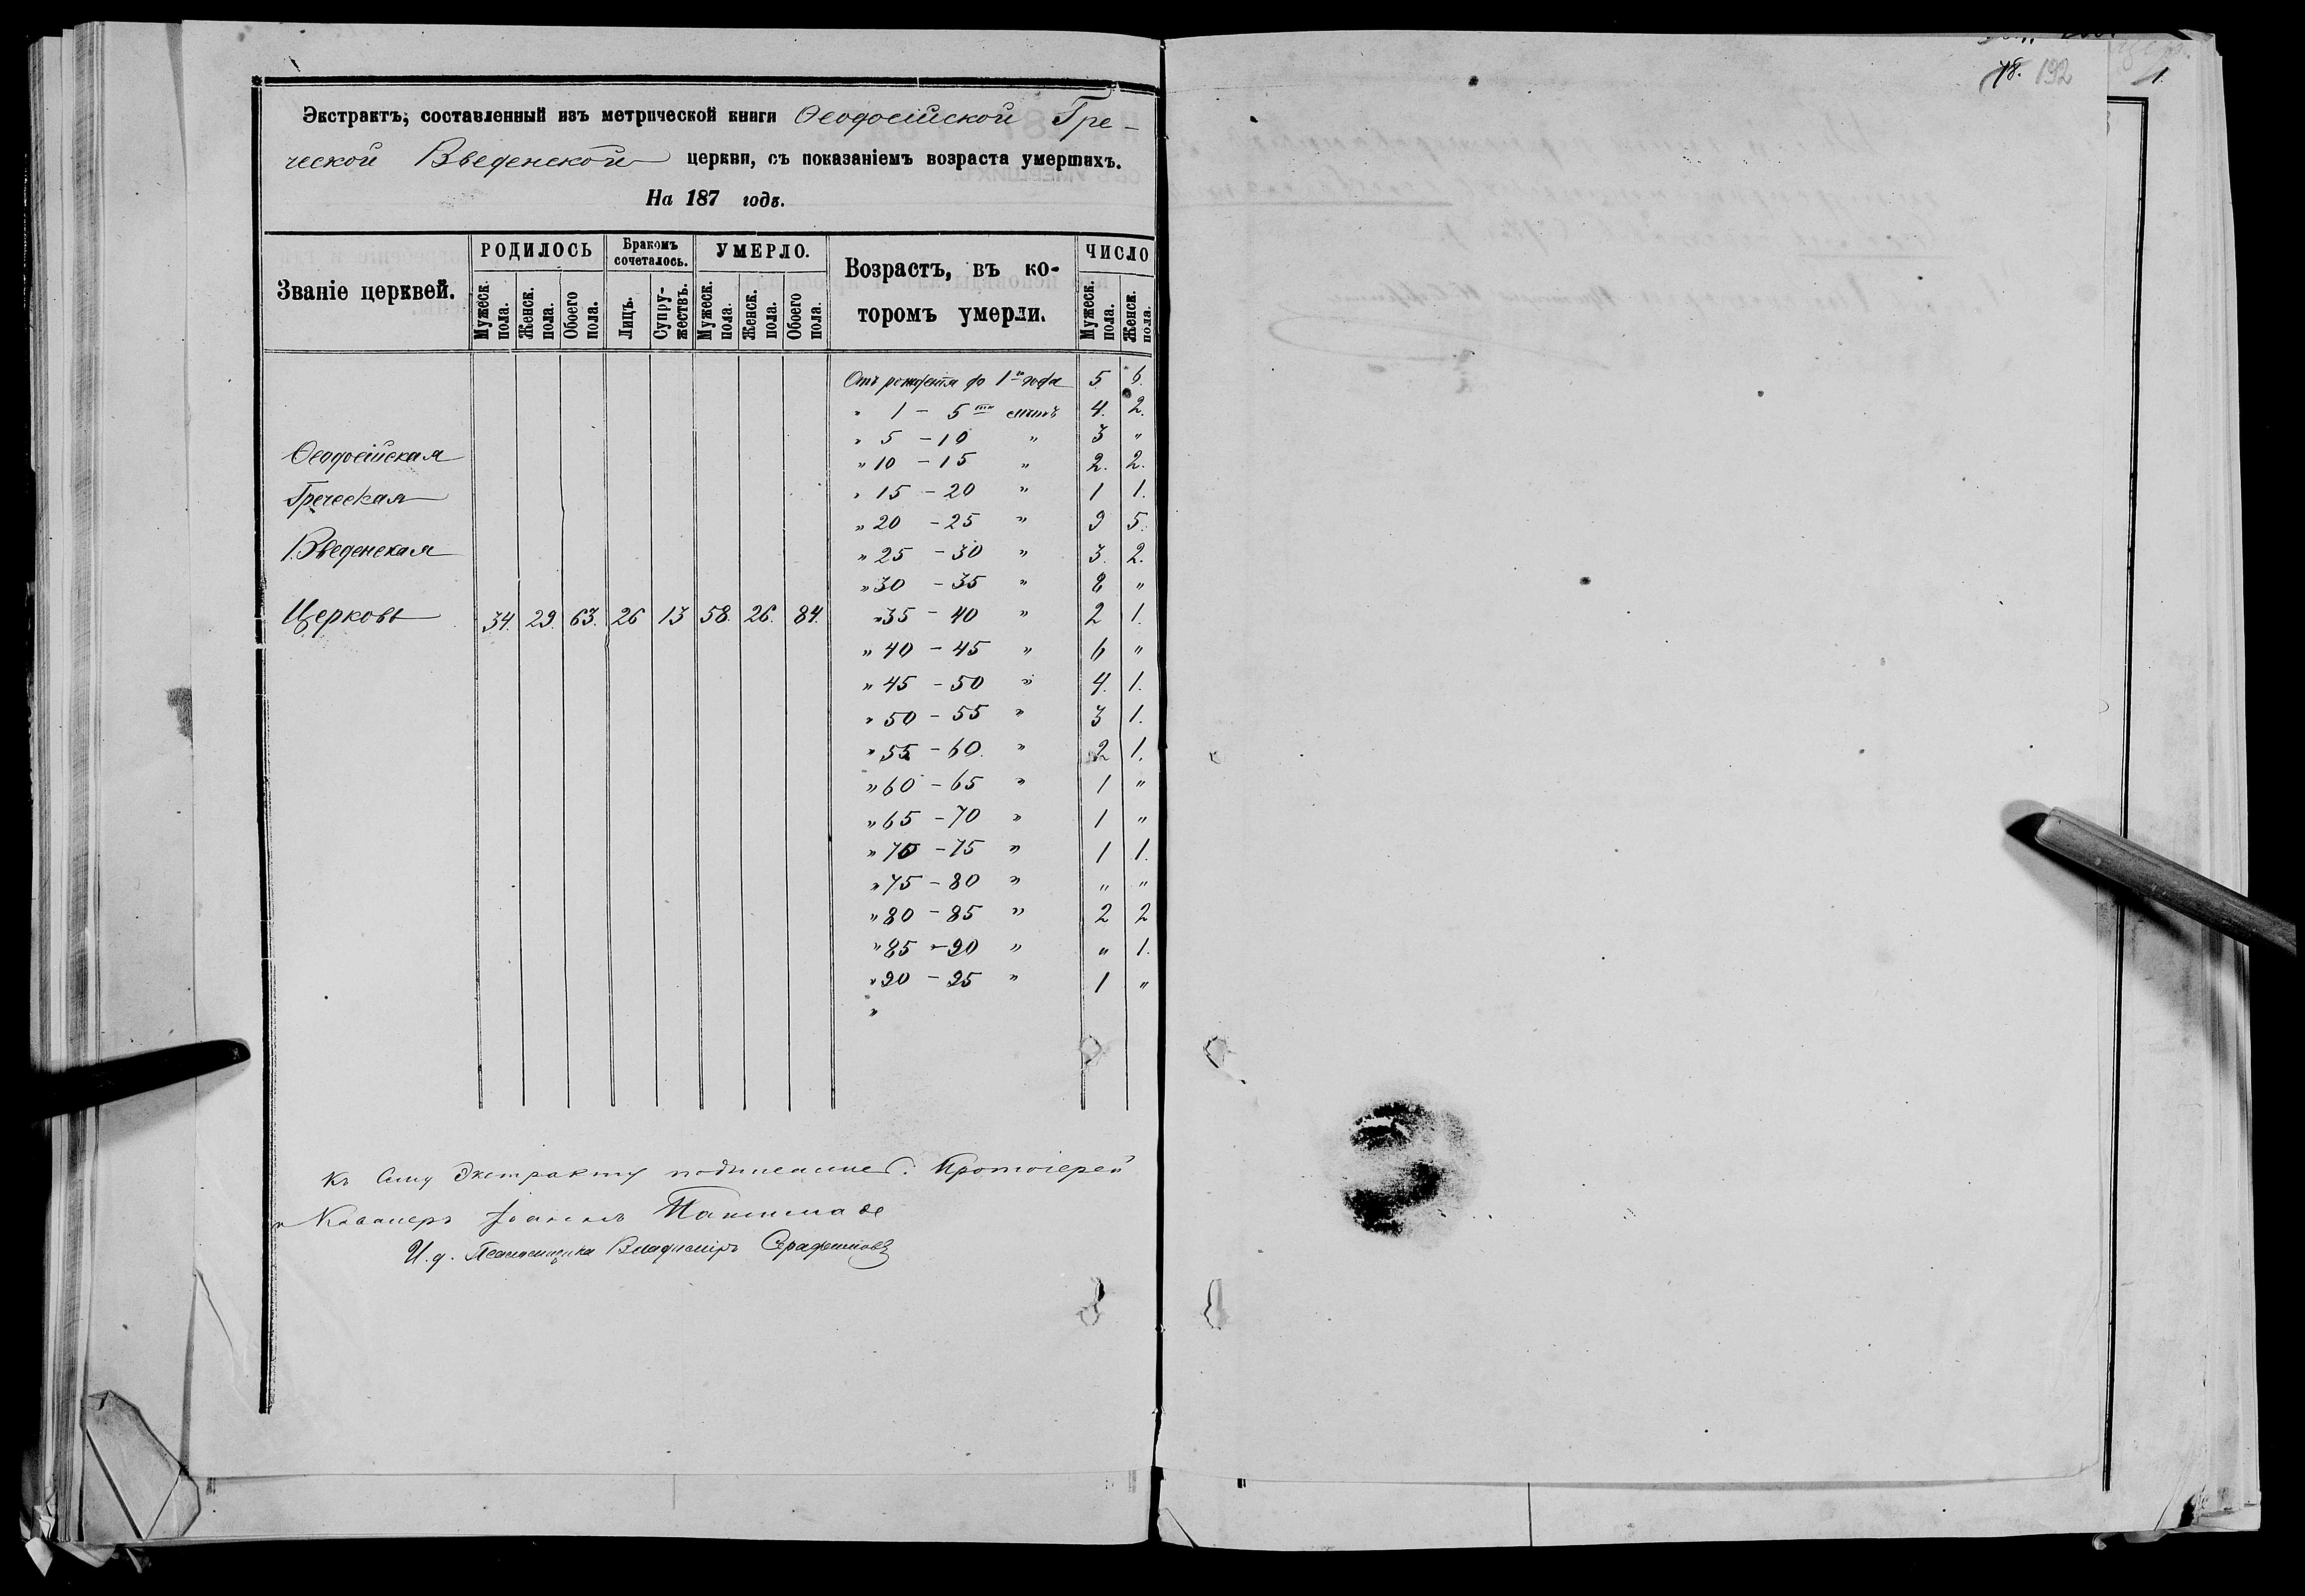 78. 192
1.
Экстрактъ, составленный изъ метрической книги Ѳеодосійской Гре-
ческой Введенской церкви, съ показаніемъ возраста умершихъ.
На 187 годъ.
Званіе церквей.
РОДИЛОСЬ
Бракомъ сочеталось.
УМЕРЛО.
Возрастъ, въ ко-
торомъ умерли.
ЧИСЛО
Мужеск. пола. Женск. пола. Обоего пола. Лицъ. Супру-жествъ. Мужеск. пола. Женск. пола. Обоего пола. Мужеск. пола. Женск. пола.
Отъ рожденія до 1го года 5 6.
" 1 - 5ти лѣтъ 4. 2.
" 5 - 10 " 3 "
Ѳеодосійская
" 10 - 15 " 2. 2.
Греческая
" 15 - 20 " 1 1.
" 20 - 25 " 9 5.
Введенская
" 25 - 30 " 3. 2.
" 30 - 35 " 8 "
Церковь 34. 29. 63. 26 13 58. 26. 84. " 35 - 40 " 2 1.
" 40 - 45 " 6 "
" 45 - 50 " 4. 1.
" 50 - 55 " 3 1.
" 55 - 60. " 2 1.
" 60 - 65 " 1 "
" 65 - 70 " 1 "
" 70 - 75 " 1 1.
" 75 - 80 " " "
" 80 - 85 " 2 2
" 85 - 90 " " 1.
" 90 - 95 " 1 "
"
Къ сему Экстракту подписались: Протоіерей
и Кавалеръ Іоаннъ
И. д. Псаломщика Владиміръ Серафимовъ